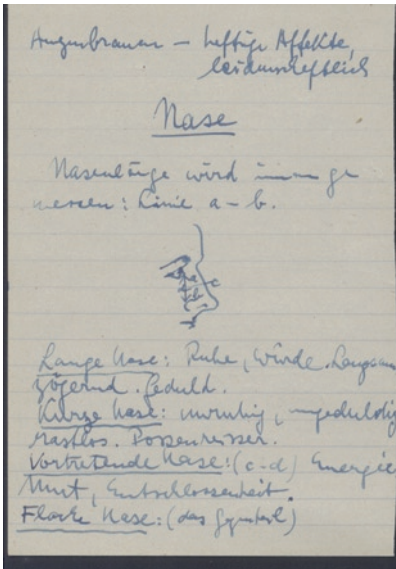 Augenbrauen – heftige Affekte,
leidenschaftlich
Nase
Nasenlänge wird immer ge
messen: Linie a – b.
a
c
b
Lange Nase: Ruhe, Würde. Langsam
zögernd. Geduld.
Kurze Nase: unruhig, ungeduldig
rastlos. Possenreisser.
Vortretende Nase: (c-d) Energie
Mut, Entschlossenheit.
Flache Nase: (das Gegenteil)